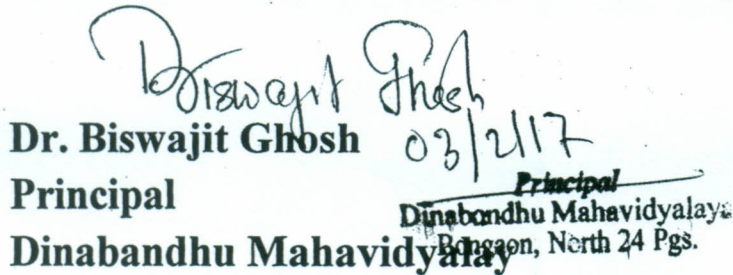 Biswajit Ghosh
03/2/17
Dr. Biswajit Ghosh
Principal
Dinabandhu Mahavidyalay
Principal
Dinabandhu Mahavidyalaya
Bongaon, North 24 Pgs.